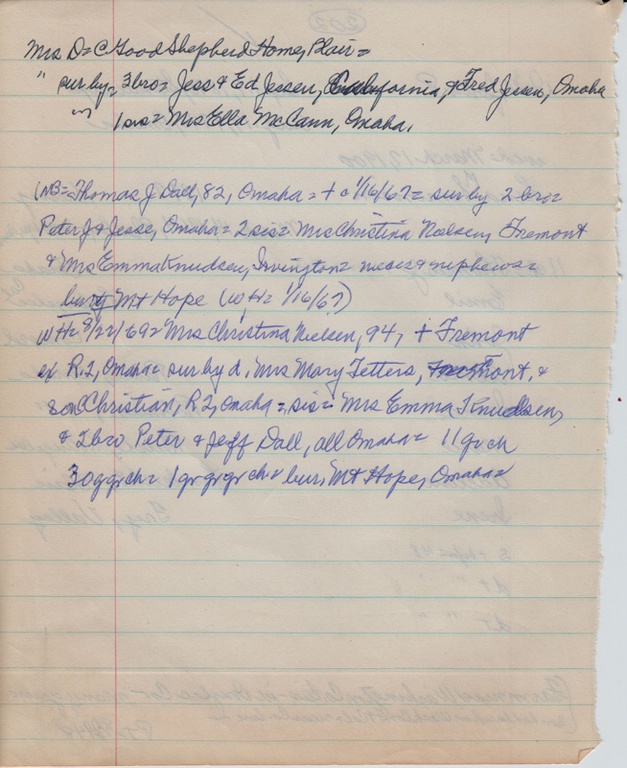 Mrs D= @ Good Shepherd Home, Blair=
" sur by= 3 bro= Jess & Ed Jessen, California, & Fred Jessen, Omaha
1 sis= Mrs Ella McCann, Omaha.
(NB= Thomas J Dall, 82, Omaha = + @ 1/16/67= sur by 2 bro=
Peter J & Jesse, Omaha= 2 sis= Mrs Christina Nielsen, Fremont
& Mrs Emma Knudsen, Irvington= nieces & nephews=
bury Mt Hope (WH= 1/16/67)
WH= 9/22/69= Mrs Christina Nielsen, 94, + Fremont
of R.2, Omaha= sur by d. Mrs Mary Tetters, Fremont, &
son Christian, R 2, Omaha= sis= Mrs Emma Knudsen,
& 2 bro Peter & Jeff Dall, all Omaha= 11 grch
30 ggrch= 1 grgrgrch= bur, Mt Hope, Omaha=